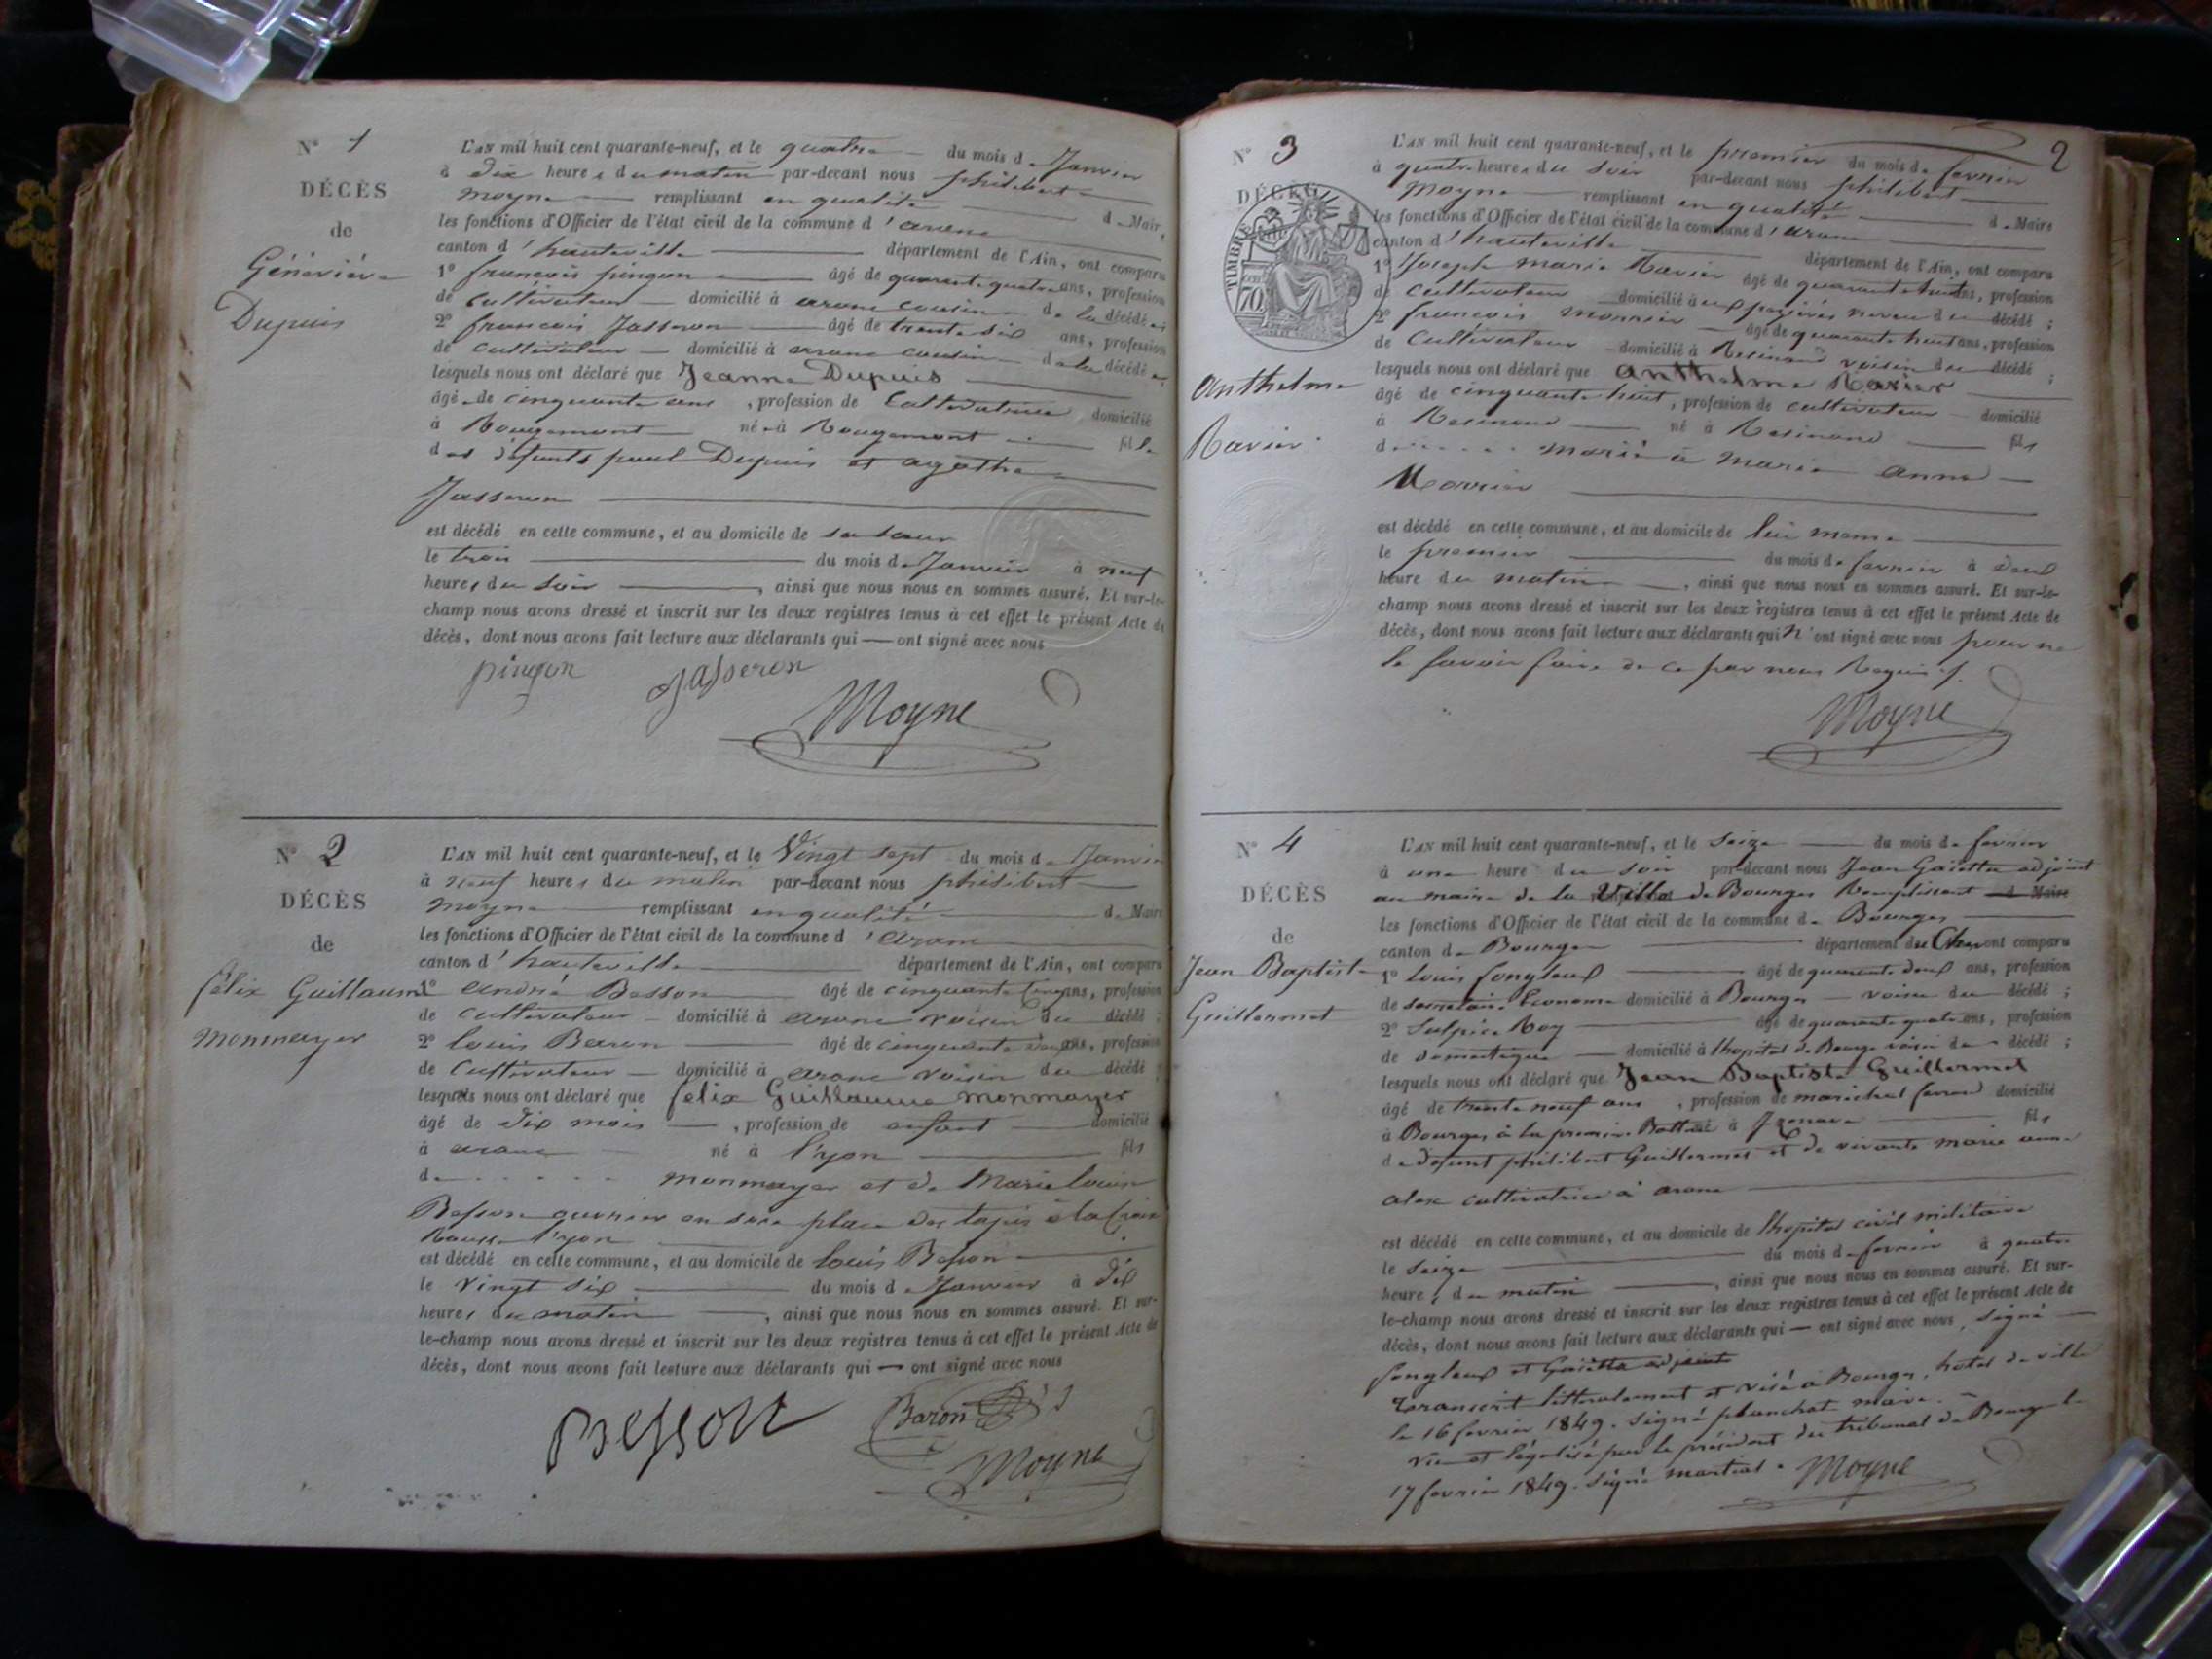 N° 1
DÉCÈS
de
Géneviève
Dupuis
L'AN mil huit cent quarante-neuf, et le quatre du mois de Janvier
à dix heures du matin par-devant nous philibert
moyne remplissant en qualité de Maire
les fonctions d'Officier de l'état civil de la commune d'aranc
canton d'hauteville département de l'Ain, ont comparu
1° francois pingon âgé de quarante quatre ans, profession
de cultivateur domicilié à aranc cousin de la décédée
2° francois Jasseron âgé de trente six ans, profession
de cultivateur domicilié à aranc cousin de la décédée
lesquels nous ont déclaré que Jeanne Dupuis
âgée de cinquante ans, profession de Cultivatrice domicilié
à Rougemont née à Rougemont fille
des défunts paul Dupuis et agathe
Jasseron
est décédé en cette commune, et au domicile de sa soeur
le trois du mois de Janvier à neuf
heures du soir, ainsi que nous nous en sommes assuré. Et sur-le-
champ nous avons dressé et inscrit sur les deux registres tenus à cet effet le présent Acte de
décès, dont nous avons fait lecture aux déclarants qui — ont signé avec nous
pingon Jasseron
Moyne
N° 2
DÉCÈS
de
félix Guillaume
monmayer
L'AN mil huit cent quarante-neuf, et le Vingt sept du mois de Janvier
à neuf heures du matin par-devant nous philibert
moyne remplissant en qualité de Maire
les fonctions d'Officier de l'état civil de la commune d'aranc
canton d'hauteville département de l'Ain, ont comparu
1° andré Besson âgé de cinquante cinq ans, profession
de cultivateur domicilié à aranc voisin du décédé ;
2° louis Baron âgé de cinquante deux ans, profession
de Cultivateur domicilié à aranc voisin du décédé ;
lesquels nous ont déclaré que félix Guillaume monmayer
âgé de dix mois, profession de enfant domicilié
à aranc né à lyon fils
de monmayer et de Marie louise
Besson ouvrier en soie place des tapis à la Croix
Rousse lyon
est décédé en cette commune, et au domicile de louis Besson
le vingt six du mois de Janvier à dix
heures du matin, ainsi que nous nous en sommes assuré. Et sur-
le-champ nous avons dressé et inscrit sur les deux registres tenus à cet effet le présent Acte de
décès, dont nous avons fait lecture aux déclarants qui — ont signé avec nous
Besson Baron
Moyne
2
N° 3
DÉCÈS
TIMBRE
70
anthelme
Ravier
L'AN mil huit cent quarante-neuf, et le premier du mois de fevrier
à quatre heures du soir par-devant nous philibert
Moyne remplissant en qualité de Maire
les fonctions d'Officier de l'état civil de la commune d'aranc
canton d'hauteville département de l'Ain, ont comparu
1° Joseph marie Ravier âgé de quarante huit ans, profession
de cultivateur domicilié à neveu du décédé ;
2° francois monnier âgé de quarante huit ans, profession
de Cultivateur domicilié à Resinand voisin du décédé ;
lesquels nous ont déclaré que anthelme Ravier
âgé de cinquante huit, profession de cultivateur domicilié
à Resinand né à Resinand fils
de marié à marie anne
est décédé en cette commune, et au domicile de lui meme
le premier du mois de fevrier à deux
heure du matin, ainsi que nous nous en sommes assuré. Et sur-le-
champ nous avons dressé et inscrit sur les deux registres tenus à cet effet le présent Acte de
décès, dont nous avons fait lecture aux déclarants qui n'ont signé avec nous pour ne
le savoir faire de ce par nous Requis.
Moyne
N° 4
DÉCÈS
de
Jean Baptiste
Guillermet
L'AN mil huit cent quarante-neuf, et le seize du mois de fevrier
à une heure du soir par-devant nous Jean Gaietta adjoint
au maire de la Ville de Bourges Remplissant de Maire
les fonctions d'Officier de l'état civil de la commune de Bourges
canton de Bourges département du Cher ont comparu
1° louis songleux âgé de quarante deux ans, profession
de secretaire Econome domicilié à Bourges voisin du décédé ;
2° Sulpice Roy âgé de quarante quatre ans, profession
de domestique domicilié à lhopital de Bourges voisin du décédé ;
lesquels nous ont déclaré que Jean Baptiste Guillermet
âgé de trente neuf ans, profession de marichal ferrand domicilié
à Bourges à la premiere né à Izenave fils
de defunt philibert Guillermet et de vivante marie anne
alex cultivatrice à aranc
est décédé en cette commune, et au domicile de lhopital civil militaire
le seize du mois de fevrier à quatre
heure, du matin, ainsi que nous nous en sommes assuré. Et sur-
le-champ nous avons dressé et inscrit sur les deux registres tenus à cet effet le présent Acte de
décès, dont nous avons fait lecture aux déclarants qui — ont signé avec nous, signé
songleux et Gaietta adjoint
transcrit litteralement et visé à Bourges, hotel de ville
le 16 fevrier 1849. signé planchat maire.
vu et légalisé par le président du tribunal de Bourges le
17 fevrier 1849. signé martial. Moyne